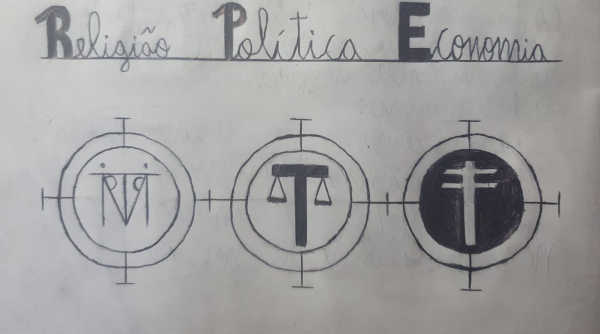 Religião Política Economia